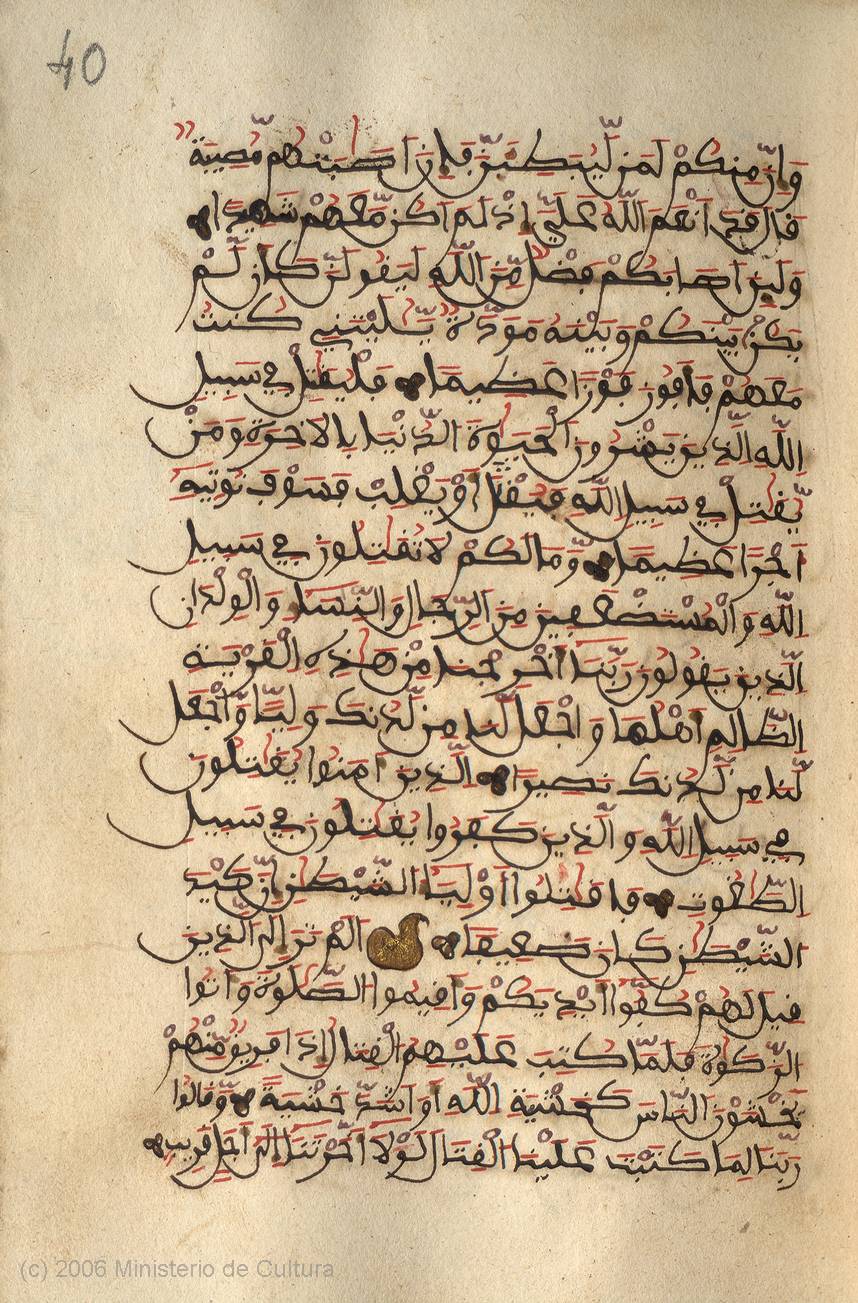 40
وَإِنَّ مِنكُمْ لَمَن لَّيُبَطِّئَنَّ فَإِنْ أَصَٰبَتْكُم مُّصِيبَةٌ
قَالَ قَدَ اَنْعَمَ اَللَّهُ عَلَيَّ إِذْ لَمَ اَكُن مَّعَهُمْ شَهِيدًا
وَلَئِنَ اَصَابَكُمْ فَضْلٌ مِّنَ اَللَّهِ لَيَقُولَنَّ كَأَن لَّمْ
يَكُنْ بَيْنَكُمْ وَبَيْنَهُ مَوَدَّةٌ يَٰلَيْتَنِي كُنتُ
مَعَهُمْ فَأَفُوزَ فَوْزًا عَظِيمًا فَلْيُقَٰتِلْ فِي سَبِيلِ
اِللَّهِ اِلَّذِينَ يَشْرُونَ اَلْحَيَوٰةَ اَلدُّنْيَا بِالَاخِرَةِ وَمَنْ
يُّقَٰتِلْ فِي سَبِيلِ اِللَّهِ فَيُقْتَلَ اَوْ يَغْلِبْ فَسَوْفَ نُوتِيهِ
أَجْرًا عَظِيمًا وَّمَا لَكُمْ لَا تُقَٰتِلُونَ فِي سَبِيلِ
اِللَّهِ وَالْمُسْتَضْعَفِينَ مِنَ اَلرِّجَالِ وَالنِّسَاءِ وَالْوِلْدَٰنِ
اِلَّذِينَ يَقُولُونَ رَبَّنَا أَخْرِجْنَا مِنْ هَٰذِهِ اِلْقَرْيَةِ
اِلظَّالِمِ أَهْلُهَا وَاجْعَل لَّنَا مِن لَّدُنكَ وَلِيًّا وَّاجْعَل
لَّنَا مِن لَّدُنكَ نَصِيرًا اِلَّذِينَ ءَامَنُوا يُقَٰتِلُونَ
فِي سَبِيلِ اِللَّهِ وَالَّذِينَ كَفَرُوا يُقَٰتِلُونَ فِي سَبِيلِ
اِلطَّٰغُوتِ فَقَٰتِلُوا أَوْلِيَاءَ اَلشَّيْطَٰنِ إِنَّ كَيْدَ
اَلشَّيْطَٰنِ كَانَ ضَعِيفًا أَلَمْ تَرَ إِلَى اَلَّذِينَ
قِيلَ لَهُمْ كُفُّوا أَيْدِيَكُمْ وَأَقِيمُوا اُلصَّلَوٰةَ وَءَاتُوا
اُلزَّكَوٰةَ فَلَمَّا كُتِبَ عَلَيْهِمُ اُلْقِتَالُ إِذَا فَرِيقٌ مِّنْهُمْ
يَخْشَوْنَ اَلنَّاسَ كَخَشْيَةِ اِللَّهِ أَوَ اَشَدَّ خَشْيَةً وَّقَالُوا
رَبَّنَا لِمَ كَتَبْتَ عَلَيْنَا اَلْقِتَالَ لَوْلَا أَخَّرْتَنَا إِلَىٰ أَجَلٍ قَرِيبٍ
(c) 2006 Ministerio de Cultura